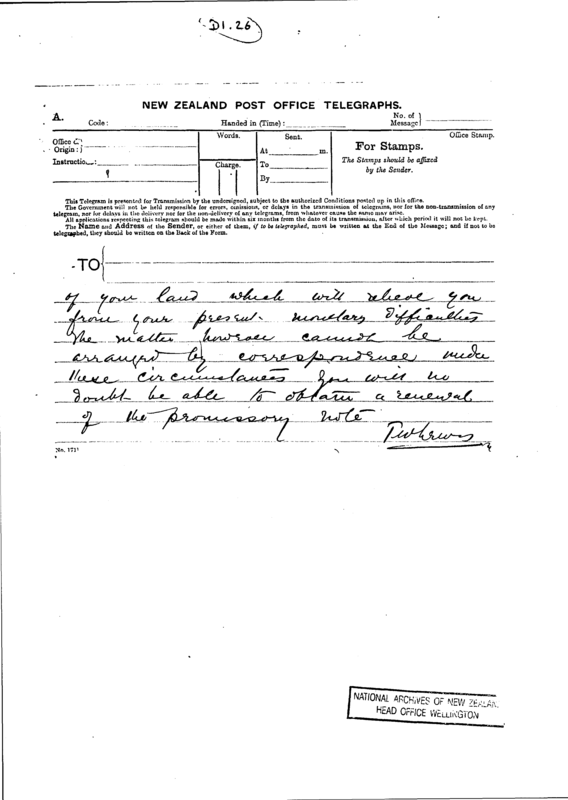 D1.26
NEW ZEALAND POST OFFICE TELEGRAPHS.
A. Code: Handed in (Time): No. of Message}
Office of Origin:} Words. Sent. For Stamps. Office Stamp.
At m.
Instructio...: Charge. To The Stamps should be affixed
By by the Sender.
This Telegram is presented for Transmission by the undersigned, subject to the authorized Conditions posted up in this office.
The Government will not be held responsible for errors, omissions, or delays in the transmission of telegrams, nor for the non-transmission of any
telegram, nor for delays in the delivery nor for the non-delivery of any telegrams, from whatever cause the same may arise.
All applications respecting this telegram should be made within six months from the date of its transmission, after which period it will not be kept.
The Name and Address of the Sender, or either of them, if to be telegraphed, must be written at the End of the Message; and if not to be
telegraphed, they should be written on the Back of the Form.
TO
of your land which will relieve you
from your present monetary difficulties
The matter however cannot be
arranged by correspondence under
these circumstances you will no
doubt be able to obtain a renewal
of the promissory note
TWLewis
No. 171
NATIONAL ARCHIVES OF NEW ZEALAN
HEAD OFFICE WELLINGTON